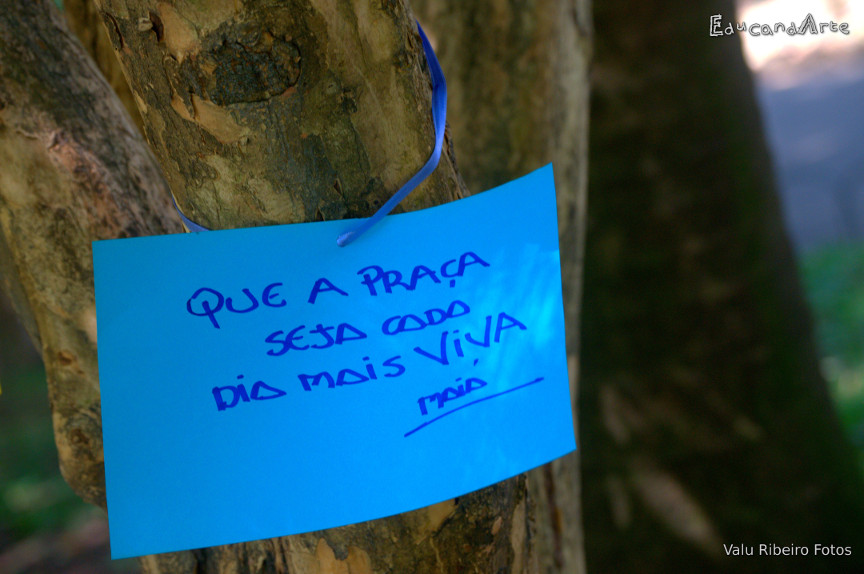 EducandArte
QUE A PRAÇA
SEJA CADA
DIA MAIS VIVA
MAIÁ
Valu Ribeiro Fotos